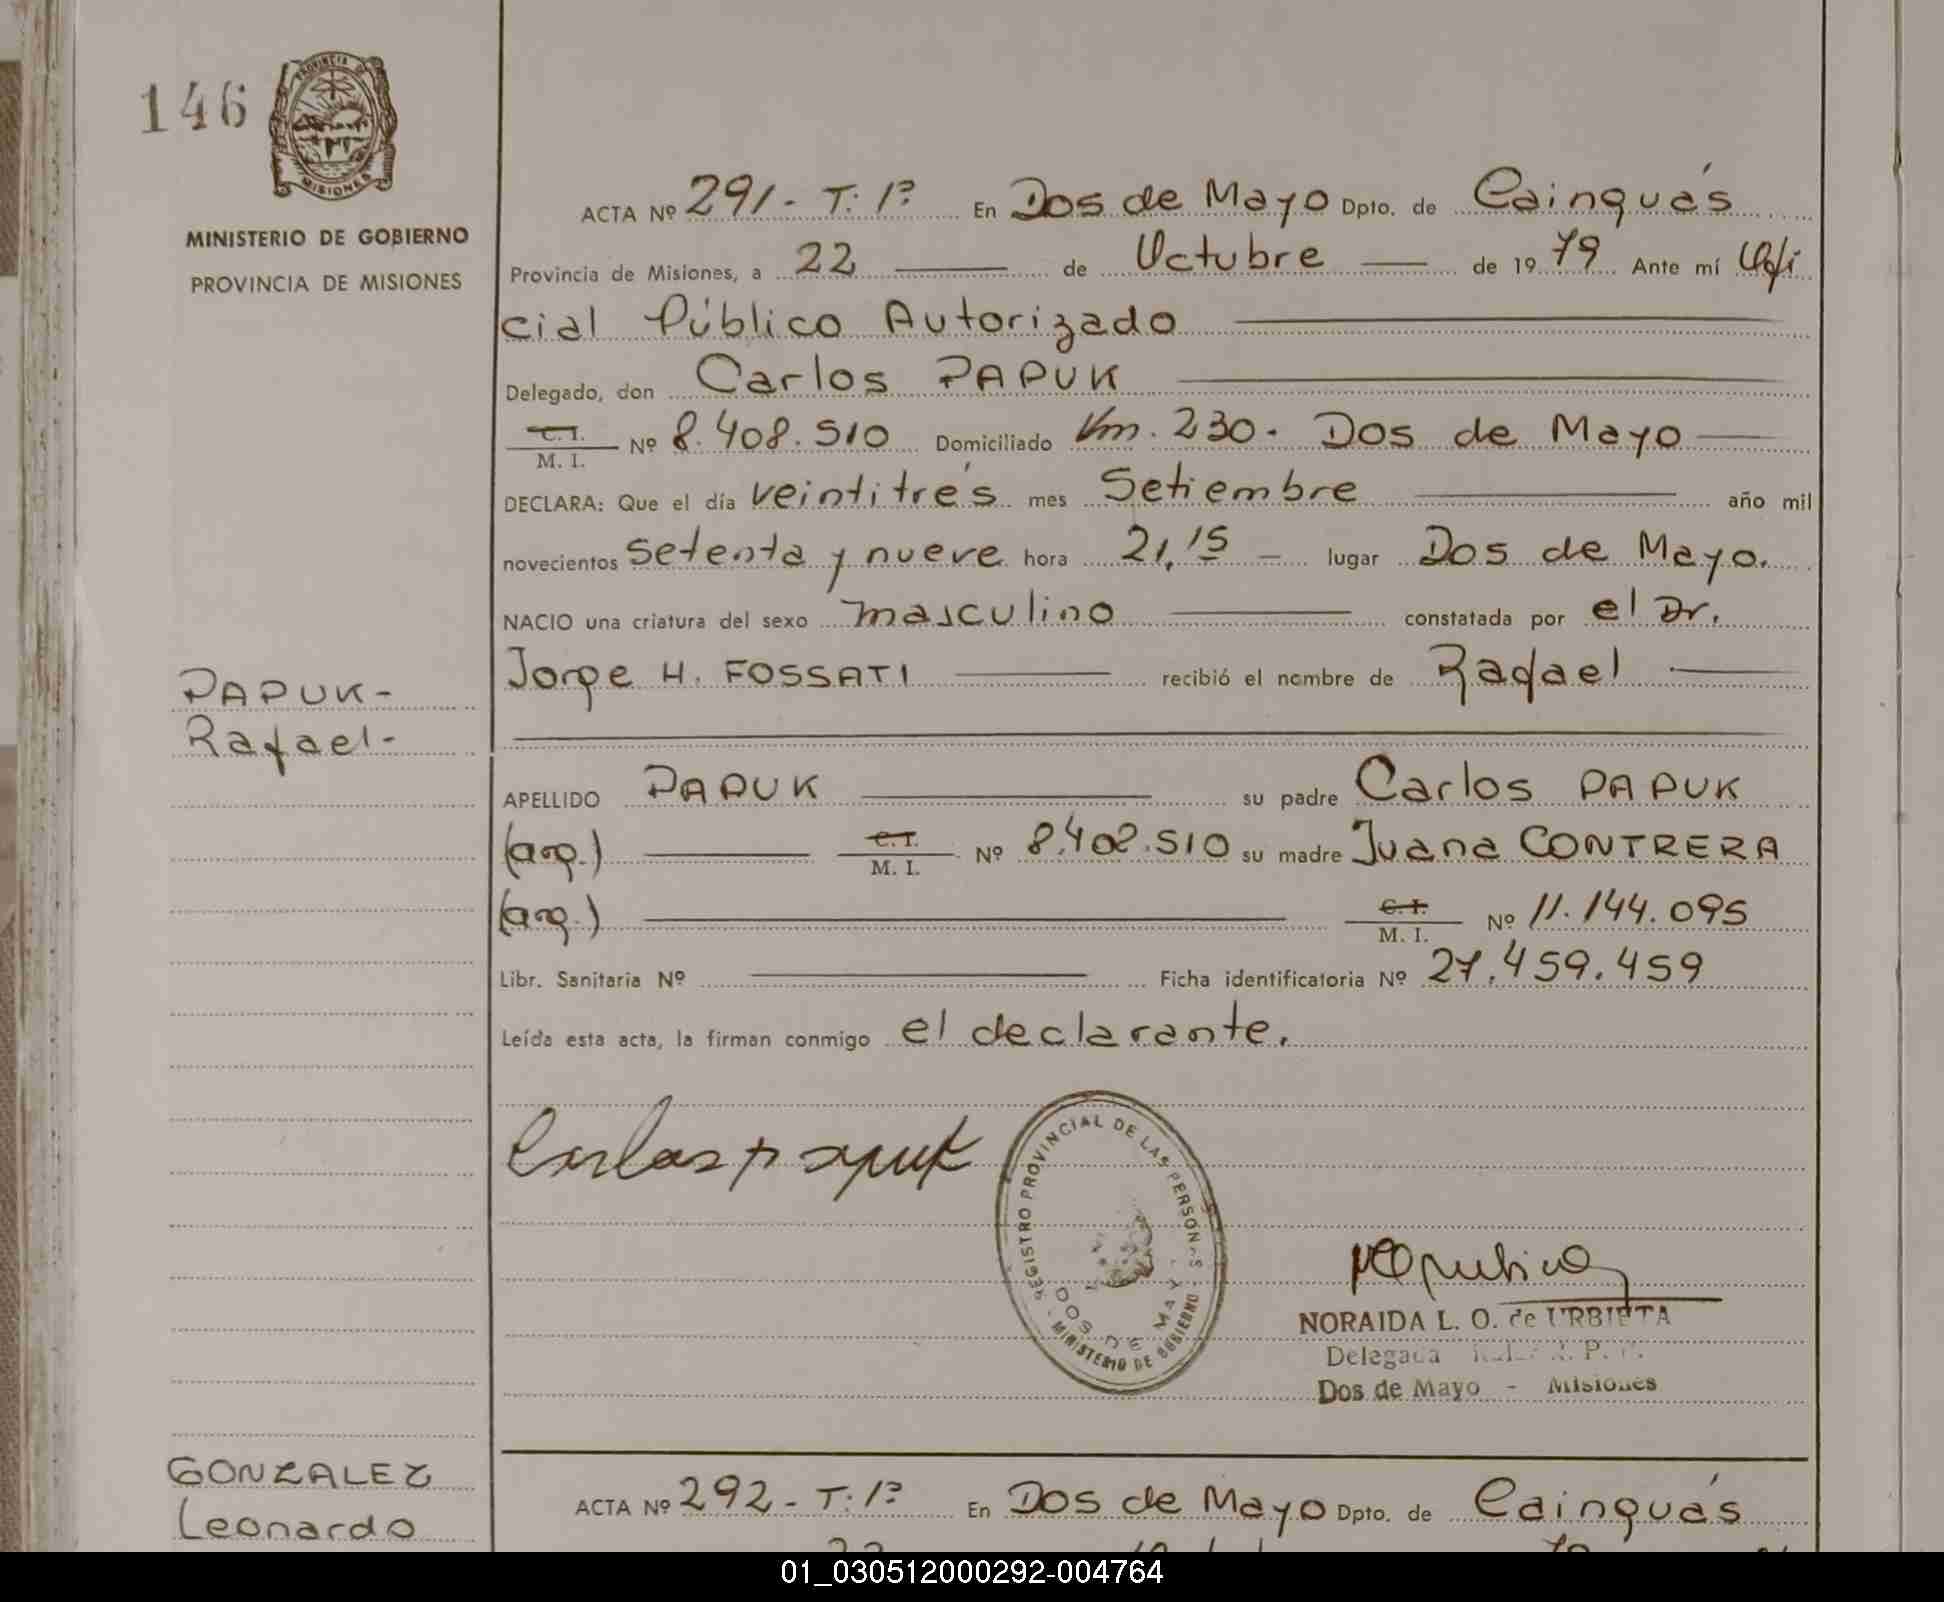 146
PROVINCIA DE
MISIONES
MINISTERIO DE GOBIERNO
PROVINCIA DE MISIONES
ACTA Nº 291- T: 1º En Dos de Mayo Dpto. de Cainguás
Provincia de Misiones, a 22 de Octubre de 1979 Ante mí Ofi
cial Público Autorizado
Delegado, don Carlos PAPUK
C. I.
M. I. Nº 8.408.510 Domiciliado Km. 230. Dos de Mayo
DECLARA: Que el día veintitrés mes Setiembre año mil
novecientos setenta y nueve hora 21,15 lugar Dos de Mayo.
NACIO una criatura del sexo masculino constatada por el Dr.
Jorge H. FOSSATI recibió el nombre de Rafael
PAPUK-
Rafael-
APELLIDO PAPUK su padre Carlos PAPUK
(arg.) C. I.
M. I. Nº 8.408.510 su madre Juana CONTRERA
(arg.) C. I.
M. I. Nº 11.144.095
Libr. Sanitaria Nº Ficha identificatoria Nº 27.459.459
Leída esta acta, la firman conmigo el declarante.
Carlos Papuk
REGISTRO PROVINCIAL DE LAS PERSONAS
DOS DE MAYO
MINISTERIO DE GOBIERNO
NORAIDA L. O. de URBIETA
Delegada
Dos de Mayo - Misiones
GONZALEZ
Leonardo
ACTA Nº 292- T: 1º En Dos de Mayo Dpto. de Cainguás
01_030512000292-004764